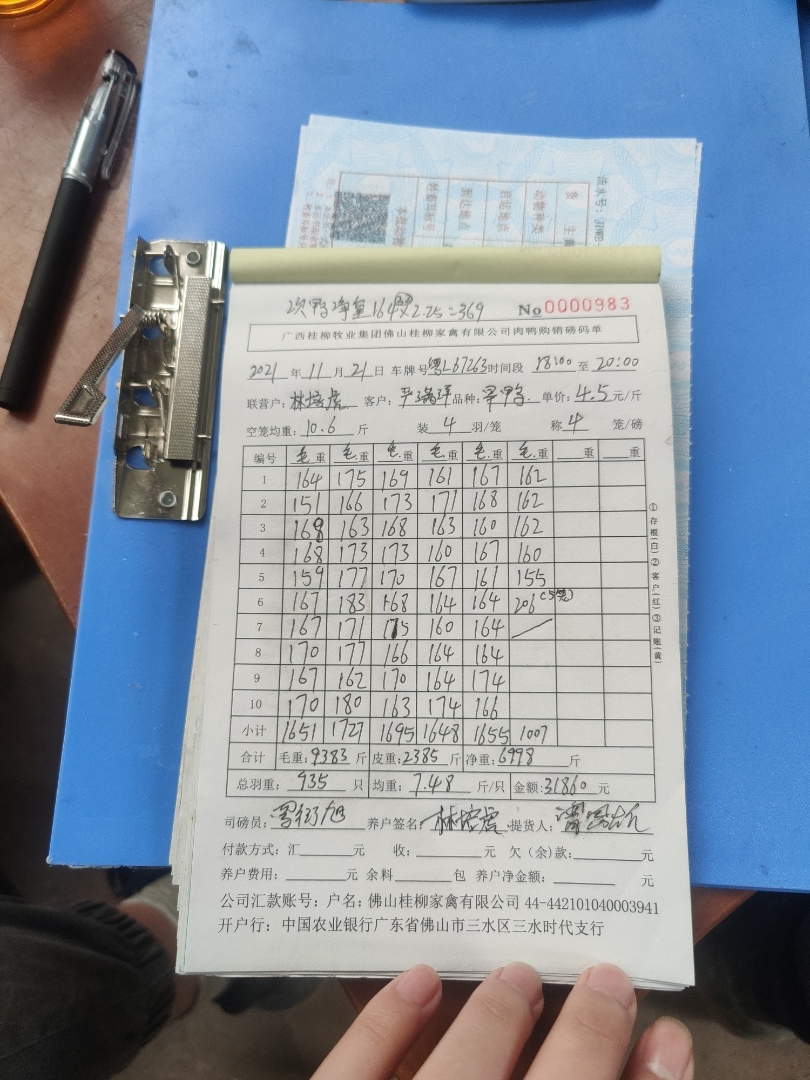 次鸭净重164只×2.25=369
No 0000983
广西桂柳牧业集团佛山桂柳家禽有限公司肉鸭购销磅码单
2021 年 11 月 21 日 车牌号 粤L67263 时间段 18:00 至 20:00
联营户: 林培虎 客户: 品种: 单价: 4.5 元/斤
空笼均重: 10.6 斤 装 4 羽/笼 称 4 笼/磅
编号 毛.重 毛.重 毛.重 毛.重 毛.重 毛.重 重 重
1 164 175 169 161 167 162
2 151 166 173 171 168 162
3 168 163 168 163 160 162
4 168 173 173 160 167 160
5 159 177 170 167 161 155
6 167 183 168 164 164 206(5笼)
7 167 171 175 160 164
8 170 177 166 164 164
9 167 162 170 164 174
10 170 180 163 174 166
小计 1651 1727 1695 1648 1655 1007
合计 毛重: 9383 斤 皮重: 2385 斤 净重: 6998 斤
总羽重: 935 只 均重: 7.48 斤/只 金额: 31860 元
司磅员: 养户签名: 林培虎 提货人:
付款方式: 汇 元 收: 元 欠(余)款: 元
养户费用: 元 余料 包 养户净金额: 元
公司汇款账号: 户名: 佛山桂柳家禽有限公司 44-442101040003941
开户行: 中国农业银行广东省佛山市三水区三水时代支行
①存根(白)②客户(红)③记账(黄)